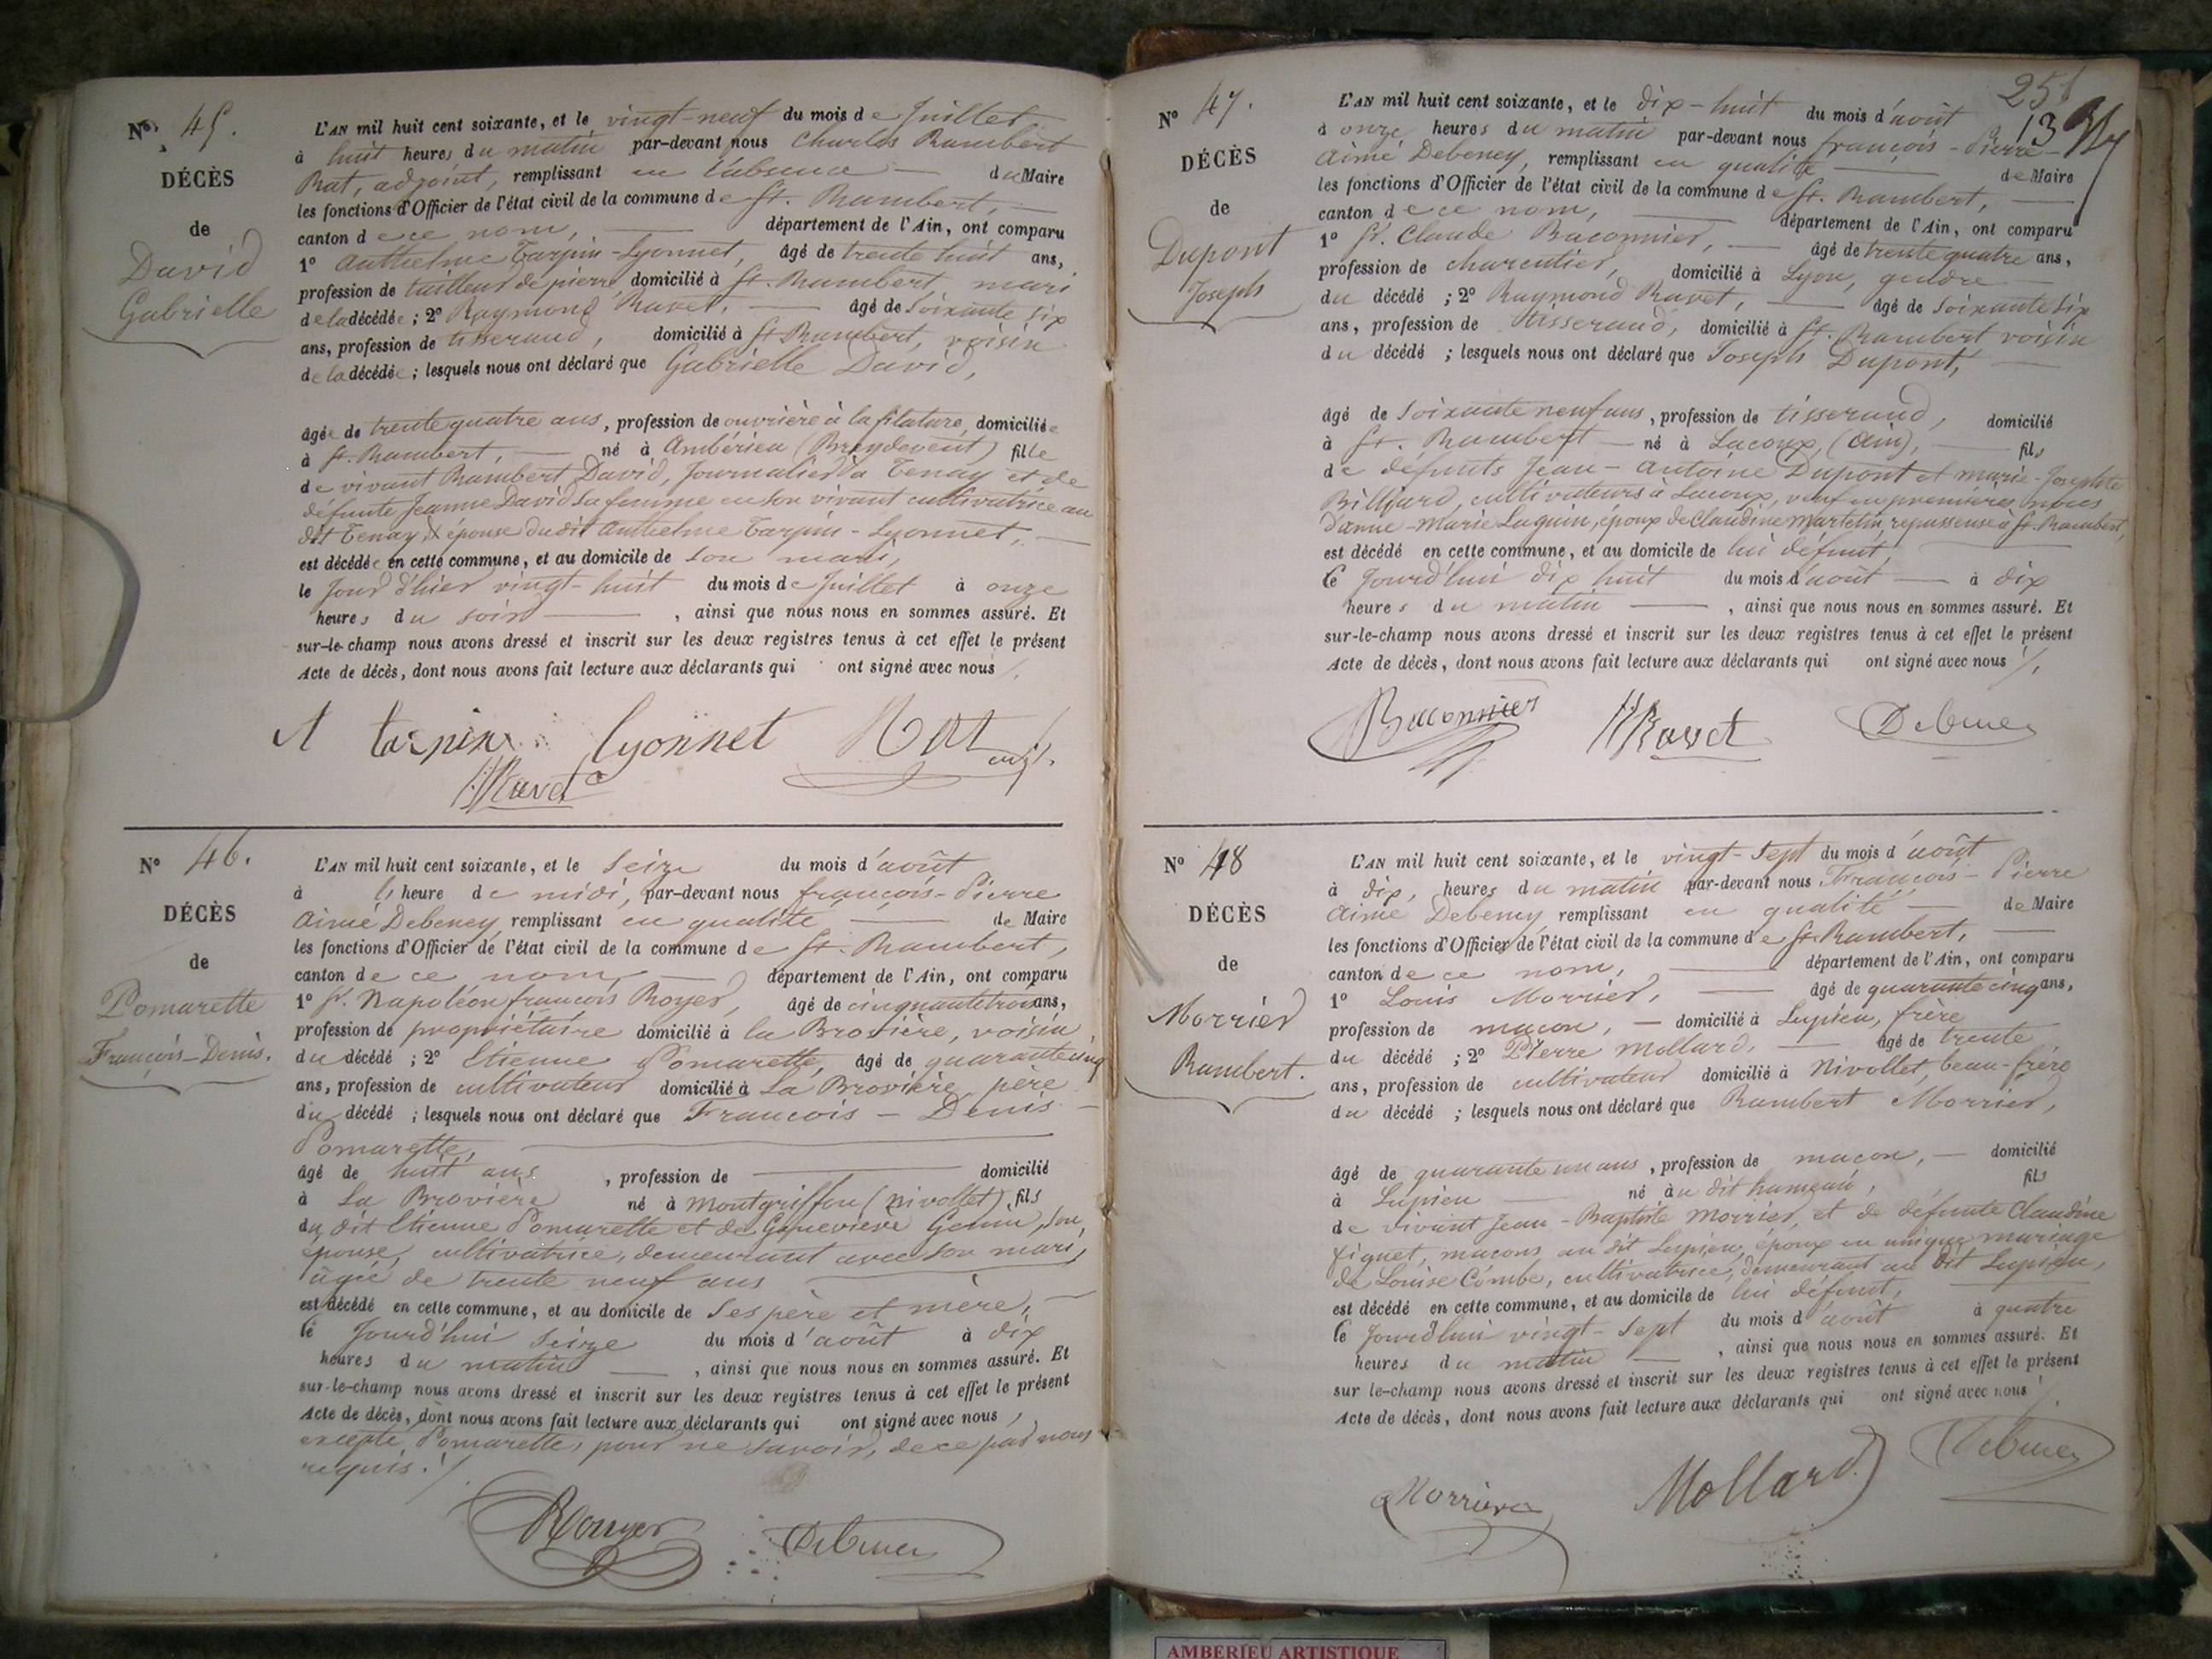 Nº 45.
DÉCÈS
de
David
Gabrielle
L'AN mil huit cent soixante, et le vingt-neuf du mois de Juillet
à huit heures du matin par-devant nous Charles Rambert
Rat, adjoint, remplissant en l'absence du Maire
les fonctions d'Officier de l'état civil de la commune de St. Rambert,
canton de ce nom, département de l'Ain, ont comparu
1º Anthelme Tarpin-Lyonnet, âgé de trente huit ans,
profession de tailleur de pierre, domicilié à St. Rambert, mari
de la décédée ; 2º Raymond Ravet, âgé de Soixante six
ans, profession de tisserand, domicilié à St Rambert, voisin
de la décédée ; lesquels nous ont déclaré que Gabrielle David,
âgée de trente quatre ans, profession de ouvrière à la filature, domiciliée
à St. Rambert, né à Ambérieu (Breydevent) fille
de vivant Rambert David, Journalier à Tenay et de
défunte Jeanne David sa femme en son vivant cultivatrice au
dit Tenay, & épouse du dit Anthelme Tarpin-Lyonnet,
est décédée en cette commune, et au domicile de son mari,
le Jour d'hier vingt-huit du mois de Juillet à onze
heures du soir , ainsi que nous nous en sommes assuré. Et
sur-le-champ nous avons dressé et inscrit sur les deux registres tenus à cet effet le présent
Acte de décès, dont nous avons fait lecture aux déclarants qui ont signé avec nous
A tarpin lyonnet Rat adj.
Ravet
Nº 46.
DÉCÈS
de
Pomarette
François-Denis.
L'AN mil huit cent soixante, et le Seize du mois d'août
à heure de midi, par-devant nous françois-Pierre
Aimé Debeney, remplissant en qualité de Maire
les fonctions d'Officier de l'état civil de la commune de St. Rambert,
canton de ce nom, département de l'Ain, ont comparu
1º Sr. Napoléon françois Royer, âgé de cinquante trois ans,
profession de propriétaire domicilié à la Brovière, voisin
du décédé ; 2º Etienne Pomarette, âgé de quarante cinq
ans, profession de cultivateur domicilié à La Brovière, père
du décédé ; lesquels nous ont déclaré que François-Denis-
Pomarette,
âgé de huit ans , profession de domicilié
à La Brovière né à Montgriffon (Nivollet), fils
du dit Etienne Pomarette et de Geneviève Genin, son
épouse, cultivatrice, demeurant avec son mari,
âgée de trente neuf ans
est décédé en cette commune, et au domicile de Ses père et mère,
le Jourd'hui seize du mois d'août à dix
heures du matin , ainsi que nous nous en sommes assuré. Et
sur-le-champ nous avons dressé et inscrit sur les deux registres tenus à cet effet le présent
Acte de décès, dont nous avons fait lecture aux déclarants qui ont signé avec nous,
excepté Pomarette, pour ne savoir, de ce par nous
requis.
Rouyer Debeney
251
13
Nº 47.
DÉCÈS
de
Dupont
Joseph
L'AN mil huit cent soixante, et le dix-huit du mois d'août
à onze heures du matin par-devant nous françois-Pierre-
Aimé Debeney, remplissant en qualité de Maire
les fonctions d'Officier de l'état civil de la commune de St. Rambert,
canton de ce nom, département de l'Ain, ont comparu
1º Sr. Claude Baconnier, âgé de trente quatre ans,
profession de charcutier, domicilié à Lyon, gendre
du décédé ; 2º Raymond Ravet, âgé de Soixante six
ans, profession de tisserand, domicilié à St. Rambert voisin
du décédé ; lesquels nous ont déclaré que Joseph Dupont,
âgé de Soixante neuf ans, profession de tisserand, domicilié
à St. Rambert né à Lacoux, (Ain), fils
de défunts Jean-Antoine Dupont et marie-Josephte
Billiard, cultivateurs à Lacoux, veuf en premières noces
d'anne-Marie Laguin, époux de Claudine Martelin, repasseuse à St. Rambert,
est décédé en cette commune, et au domicile de lui défunt
le Jourd'hui dix huit du mois d'août à dix
heures du matin , ainsi que nous nous en sommes assuré. Et
sur-le-champ nous avons dressé et inscrit sur les deux registres tenus à cet effet le présent
Acte de décès, dont nous avons fait lecture aux déclarants qui ont signé avec nous
Baconnier Ravet Debeney
Nº 48
DÉCÈS
de
Morrier
Rambert.
L'AN mil huit cent soixante, et le vingt-sept du mois d'août
à dix, heures du matin par-devant nous François-Pierre
Aimé Debeney remplissant en qualité de Maire
les fonctions d'Officier de l'état civil de la commune de St. Rambert,
canton de ce nom, département de l'Ain, ont comparu
1º Louis Morrier, âgé de quarante cinq ans,
profession de maçon, domicilié à Lupieu, frère
du décédé ; 2º Pierre Mollard, âgé de trente
ans, profession de cultivateur domicilié à Nivollet, beau-frère
du décédé ; lesquels nous ont déclaré que Rambert Morrier,
âgé de quarante un ans, profession de maçon, domicilié
à Lupieu né au dit hameau, fils
de vivant Jean-Baptiste Morrier, et de défunte Claudine
figuet, maçons au dit Lupieu, époux en unique mariage
de Louise Combe, cultivatrice, demeurant au dit Lupieu,
est décédé en cette commune, et au domicile de lui défunt,
le Jourd'hui vingt-sept du mois d'août à quatre
heures du matin , ainsi que nous nous en sommes assuré. Et
sur le-champ nous avons dressé et inscrit sur les deux registres tenus à cet effet le présent
Acte de décès, dont nous avons fait lecture aux déclarants qui ont signé avec nous
Morrier Mollard Debeney
AMBERIEU ARTISTIQUE